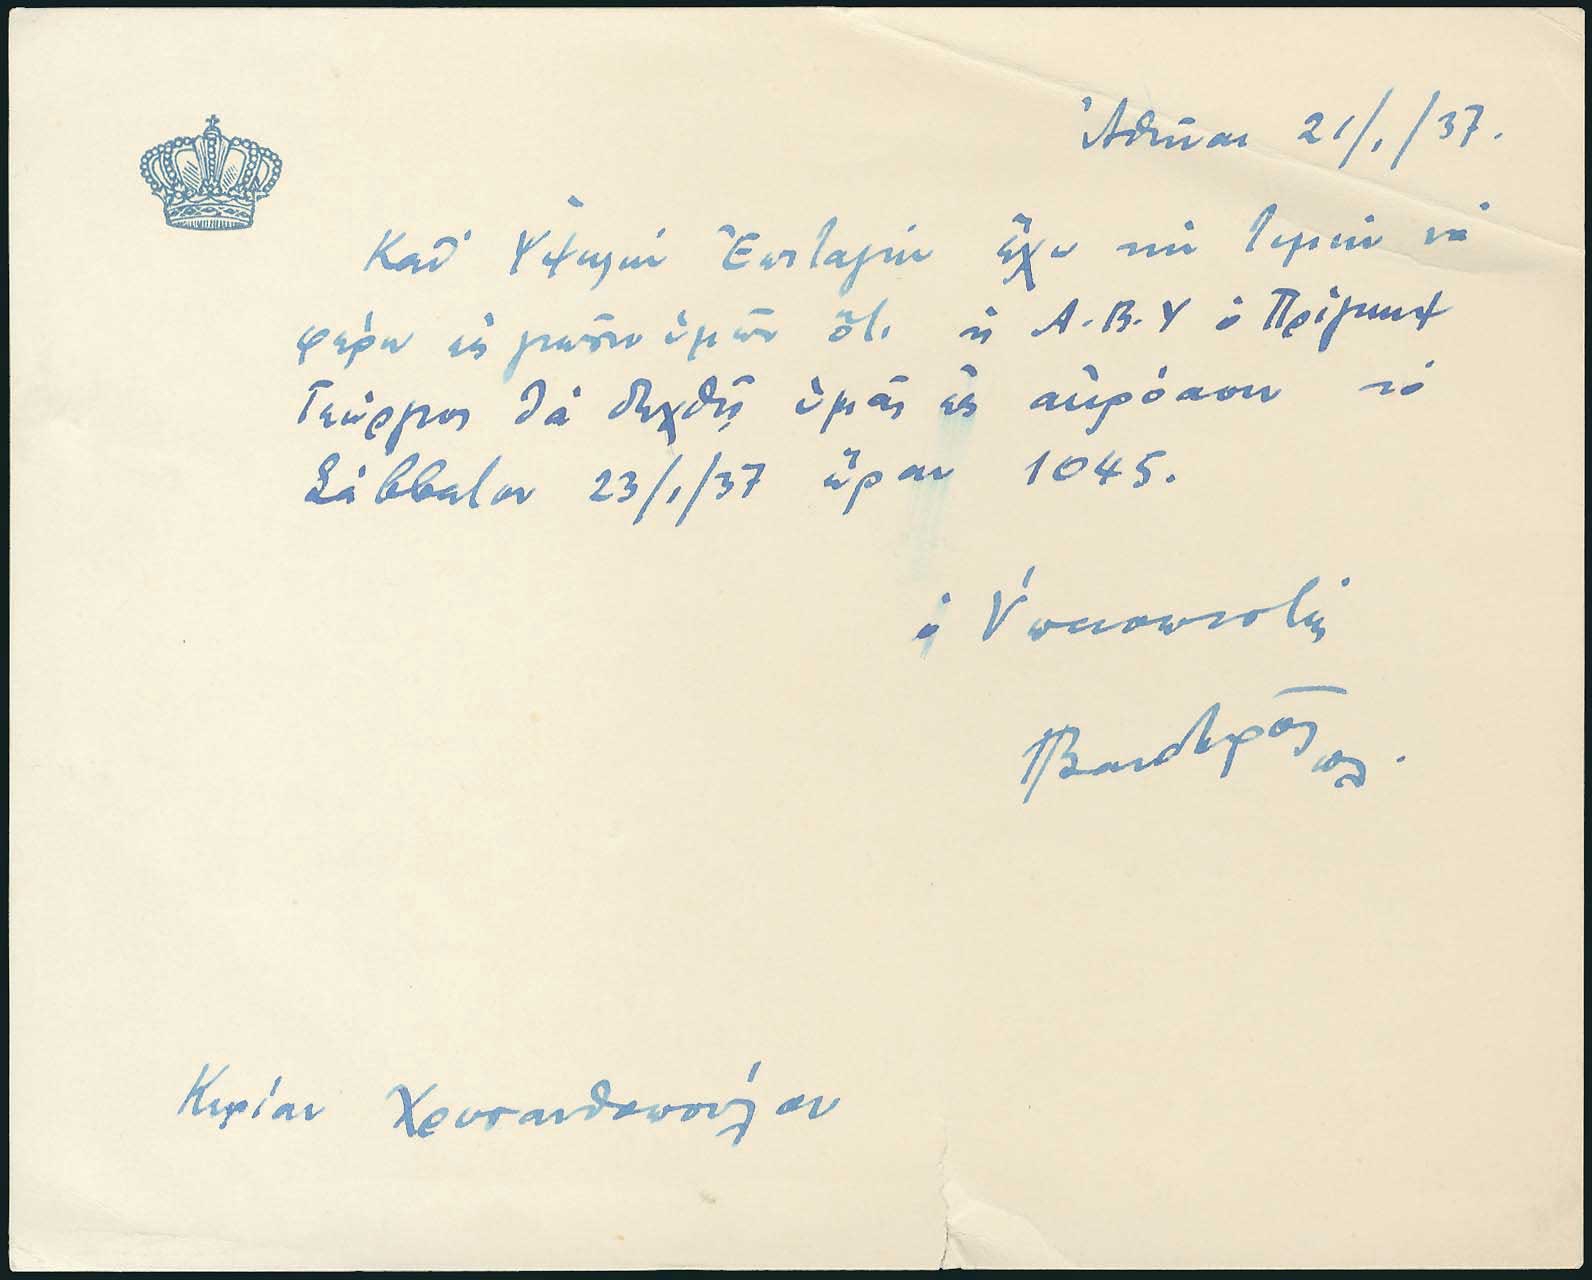 Ἀθῆναι 21/1/37.
Καθ' Ὑψηλὴν Ἐπιταγὴν ἔχω τὴν τιμὴν νὰ
φέρω εἰς γνῶσιν ὑμῶν ὅτι ἡ Α.Β.Υ ὁ Πρίγκηψ
Γεώργιος θὰ δεχθῇ ὑμᾶς εἰς ἀκρόασιν τὸ
Σάββατον 23/1/37 ὥραν 1045.
ὁ Ὑπασπιστὴς
Κυρίαν Χρυσανθοπούλου